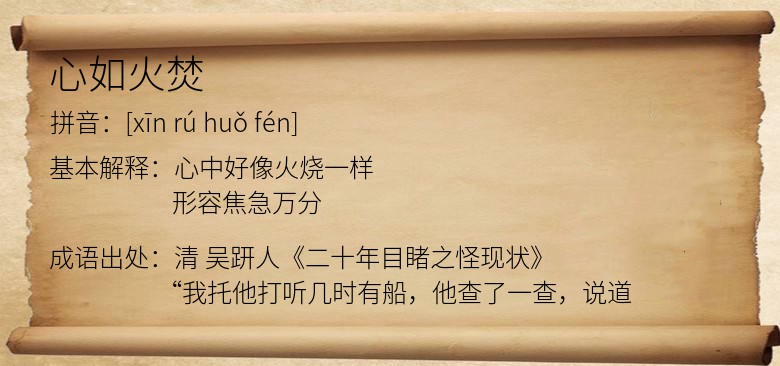 心如火焚
拼音：[xīn rú huǒ fén]
基本解释：心中好像火烧一样
形容焦急万分
成语出处：清 吴趼人《二十年目睹之怪现状》
“我托他打听几时有船，他查了一查，说道